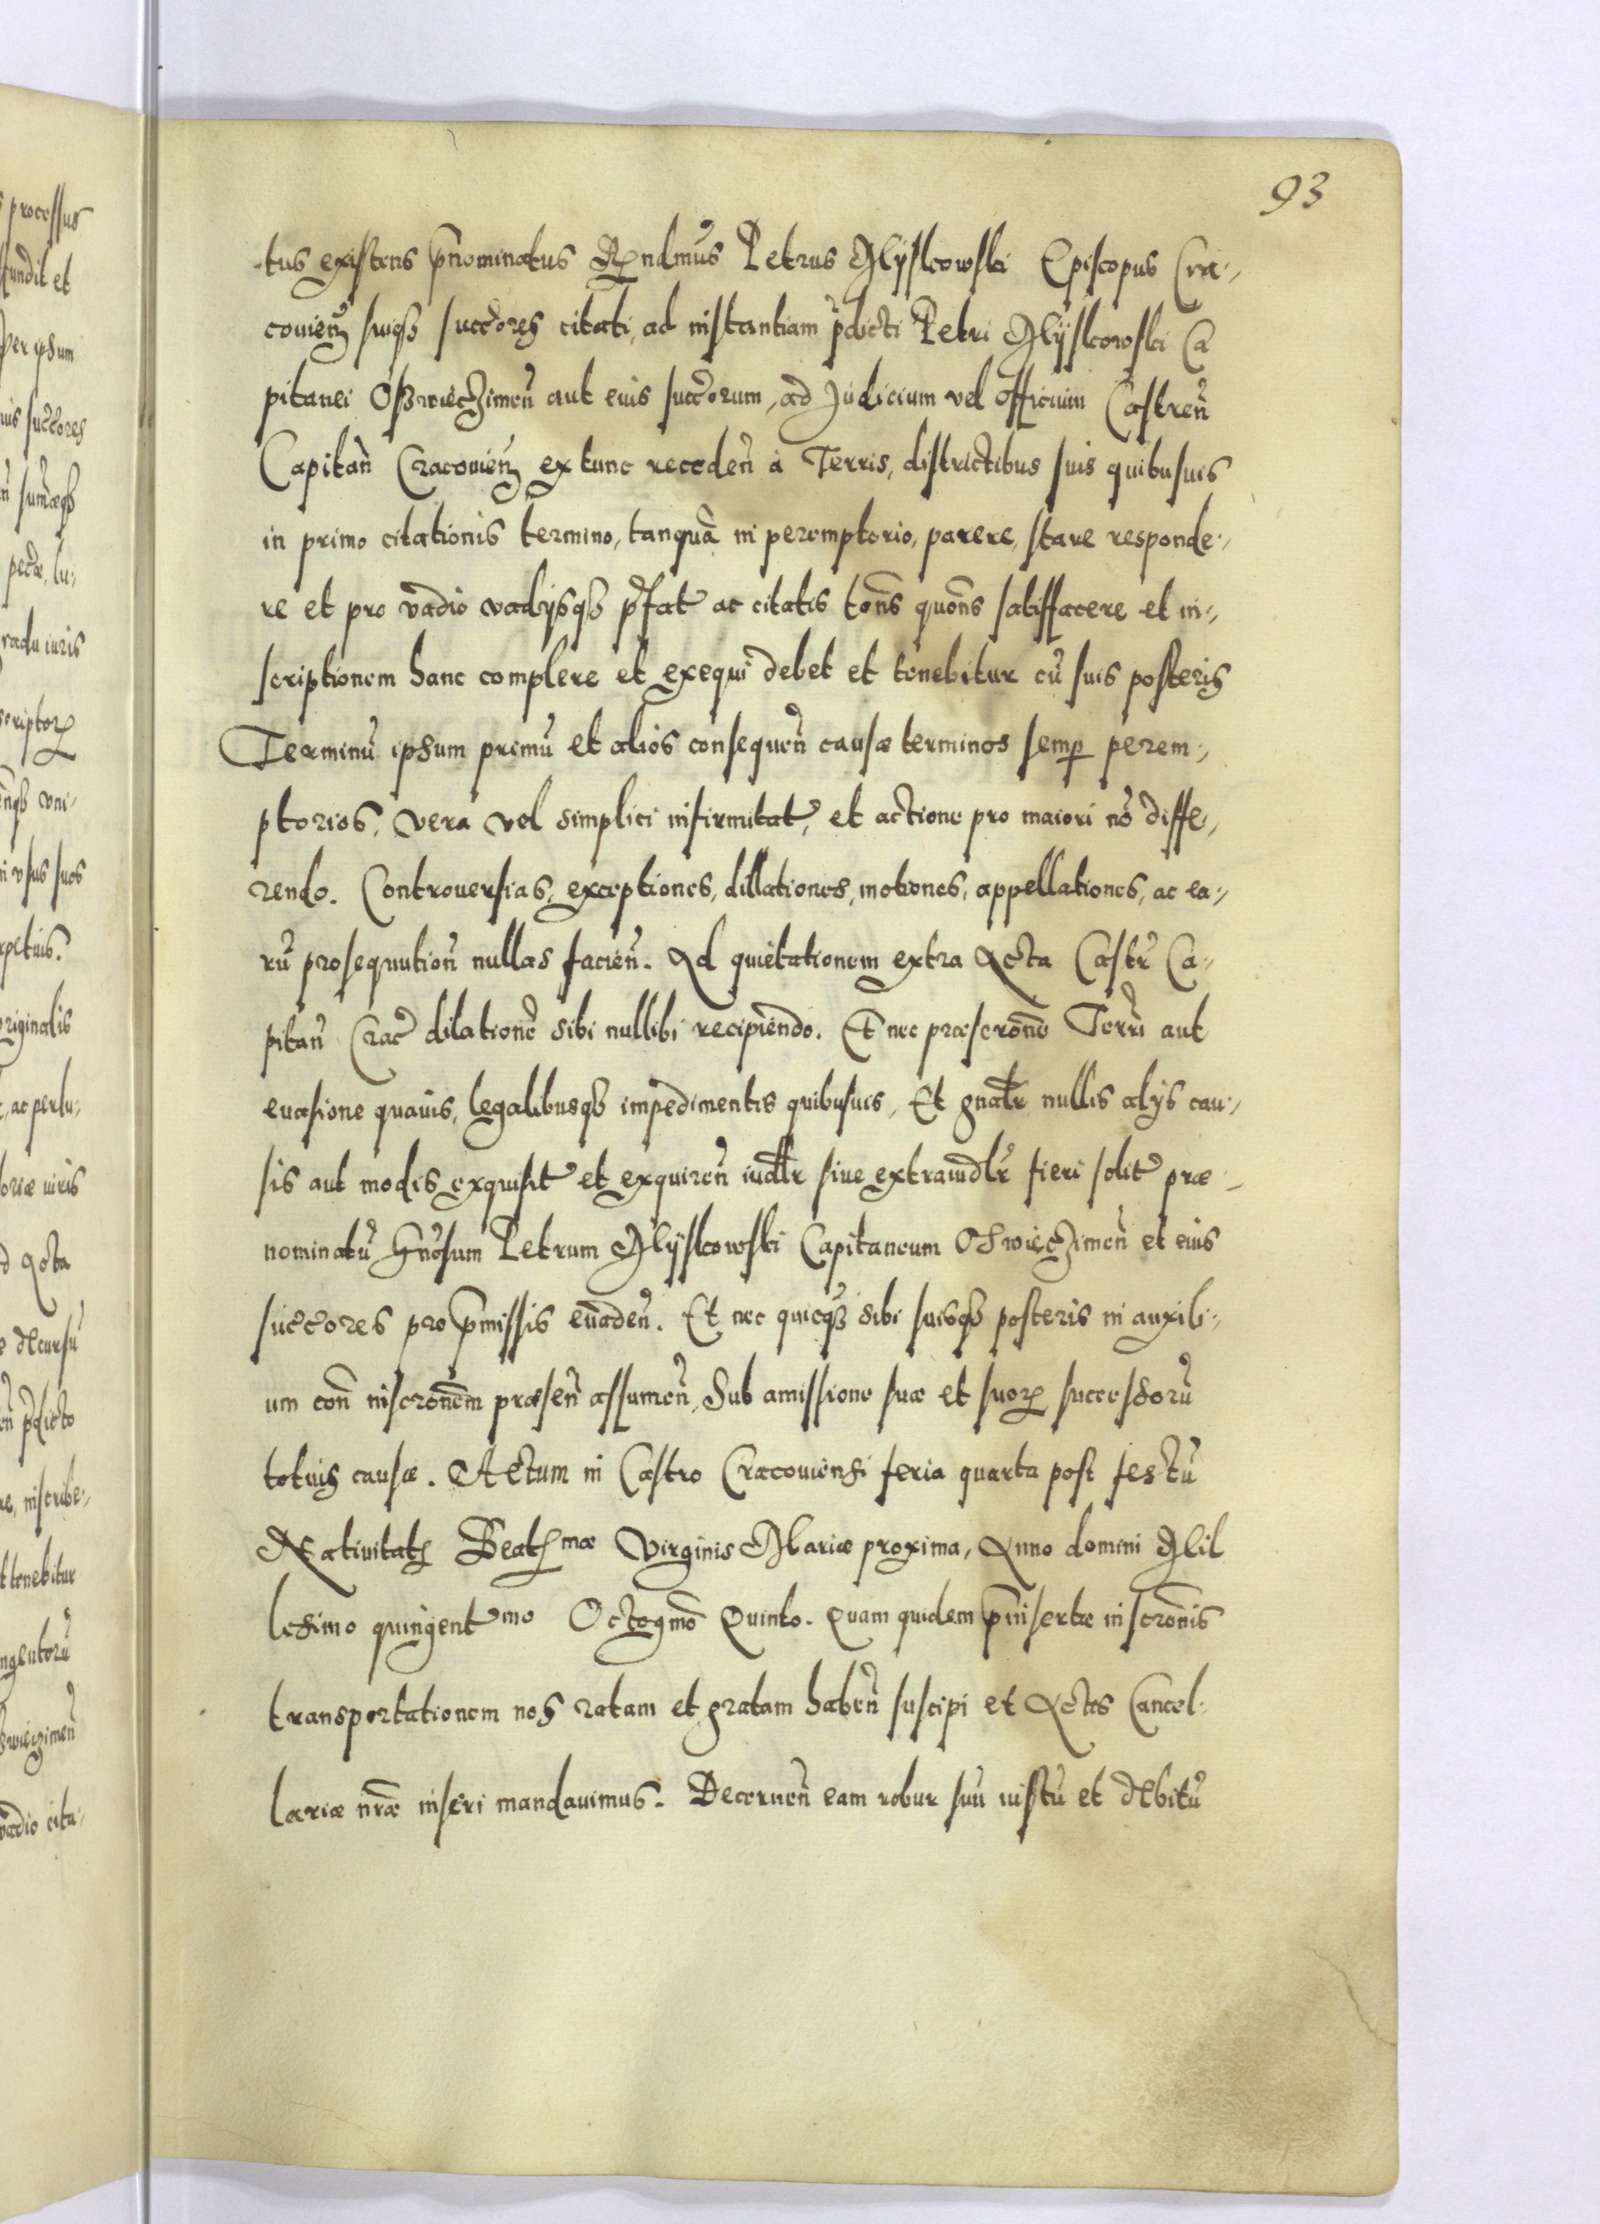 93
tus existens p̄nominatus Rndmus Petrus Myszkowski Episcopus Cra-
couien̄ suiqȝ succores citati, ad instantiam p̄dicti Petri Myszkowski Ca
pitanei Osswieczimen̄ aut eius succorum, ad Judicium vel officium Castren̄
Capitan̄ Cracouien̄ ex tunc receden̄ à Terris, districtibus suis quibusuis
in primo citationis termino, tanquā in peremptorio, parere, stare responde-
re et pro vadio vadijsqȝ p̄fat ac citatis tons quons satisfacere et in-
scriptionem hanc complere et exequi debet et tenebitur cū suis posteris
Terminū ipsum primū et alios consequen̄ causæ terminos semp perem-
ptorios, vera vel simplici infirmitat, et actione pro maiori nō diffe-
rendo. Controuersias, exceptiones, dillationes, motiones, appellationes, ac ea-
rū prosequution̄ nullas facien̄. Ad quietationem extra Acta Castr Ca-
pitan̄ Crac dilationē sibi nullibi recipiendo. Et nec præscrone Terri aut
euasione quauis, legalibusqȝ impedimentis quibusuis, Et gnalr nullis alijs cau-
sis aut modis exquisit et exquiren̄ iudlr siue extraiudlr fieri solit præ-
nominatū Gnosum Petrum Myszkowski Capitaneum Oswieczimen̄ et eius
succores pro p̄missis euaden̄. Et nec quicqȝ sibi suisqȝ posteris in auxili-
um con̄ inscronem præsen̄ assumen̄, Sub amissione suæ et suorꝝ successorū
totius causæ. Actum in Castro Cracouiensi feria quarta post festū
Natiuitatis Beatismæ Virginis Mariæ proxima, Anno domini Mil
lesimo quingentmo Octogmo Quinto. Quam quidem p̄insertæ inscronis
transportationem nos ratam et gratam haben̄ suscipi et Actis Cancel-
lariæ nræ inseri mandauimus. Decernen̄ eam robur suū iustū et debitū